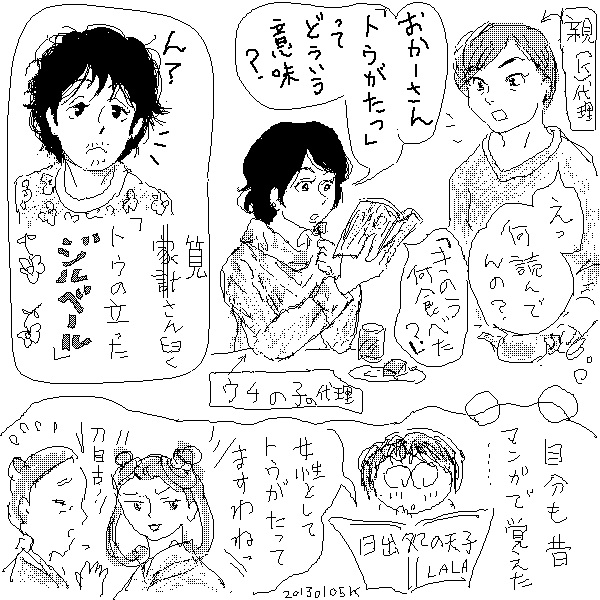 おかーさん
「トウがたつ」
って
どういう
意味
？
親（母）代理
えっ
何読んで
んの？
「きのうべた
何食べた
？」
ウチの子の代理
ん？
筧
家計さん曰く
「トウの立った
ジルベール」
自分も昔
マンガで覚えた
……
日出処の天子
LALA
女性として
トウがたって
ますわねっ
刀自古！
20130105K